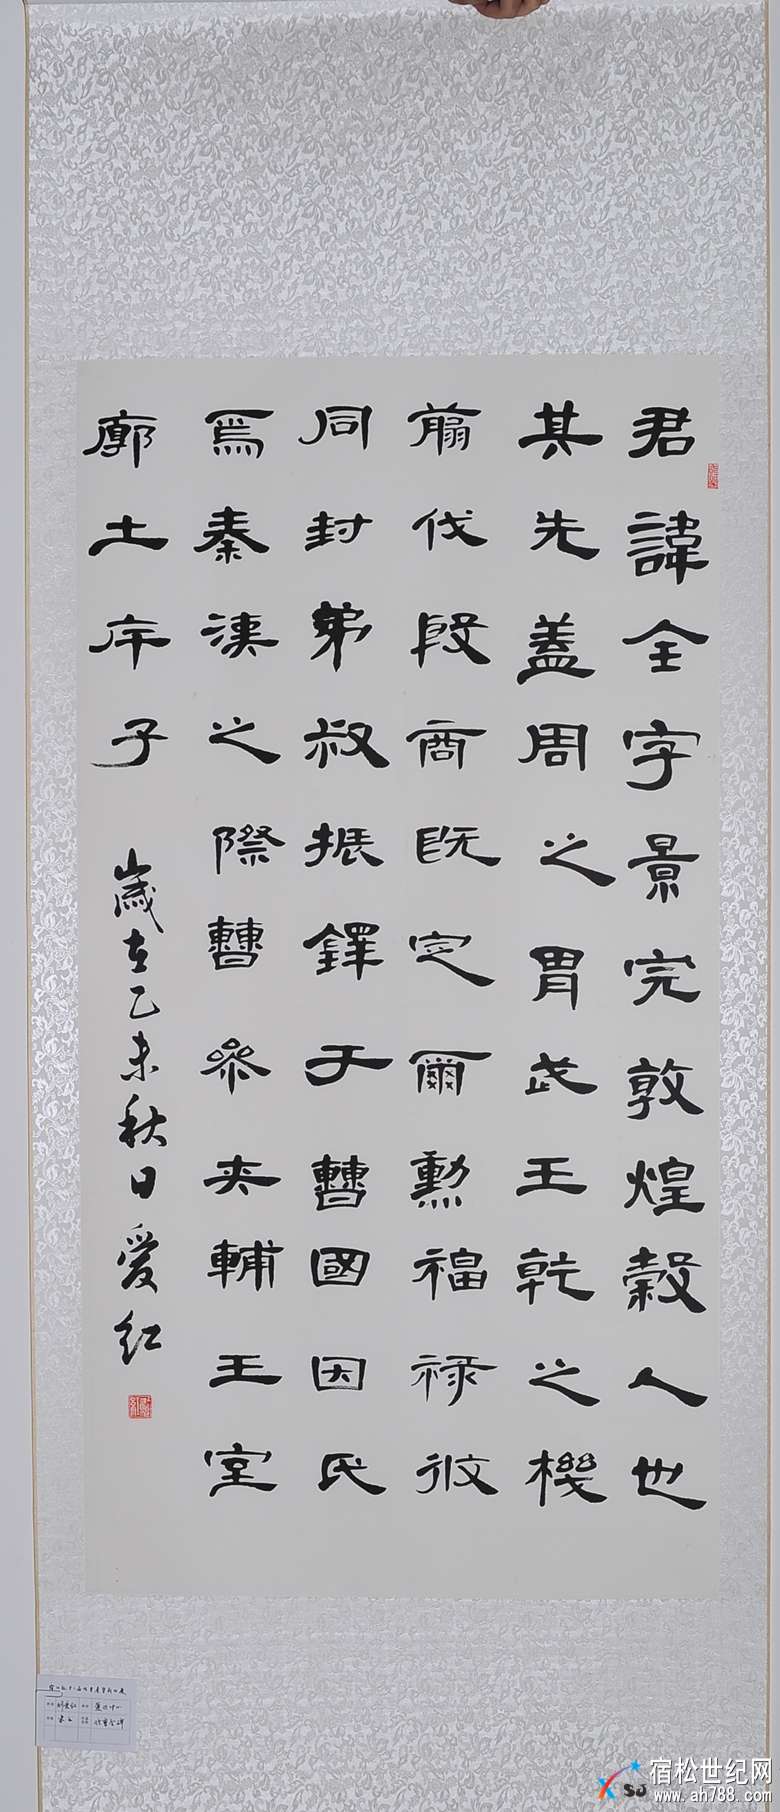 君諱全字景完敦煌穀人也
其先蓋周之胄武王乾之機
翦伐殷商既定爾勳福祿攸
同封弟叔振鐸于曹國因氏
焉秦漢之際曹參夾輔王室
廓土斥子
歲在乙未秋日愛红
宿松世纪网
www.ah788.com